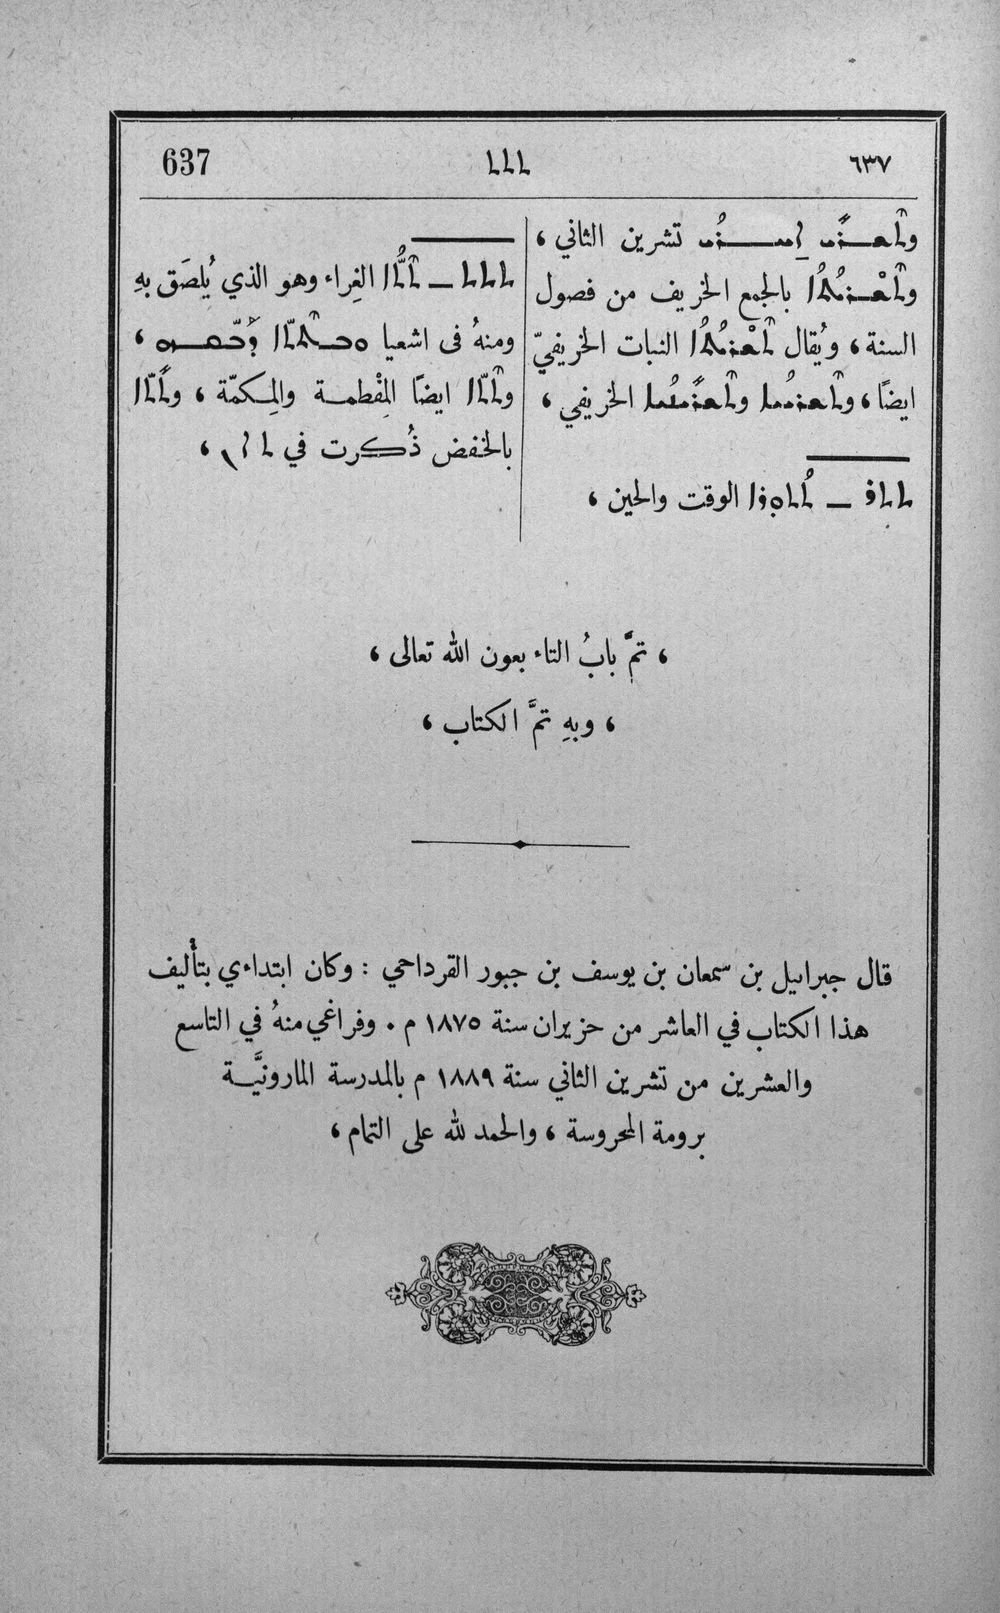 637 ܬܬܬ ٦٣٧
وܬܫܪܝ ܐܚܪܝ تشرين الثاني ،
وܬܫܪ̈ܝܬܐ بالجمع الخريف من فصول
السنة ، ويُقال النبات الخريفيّ
ايضًا ، و و الخريفي ،
ܬܬܪ — ܬܬܘܪܐ الوقت والحين ،
ܬܬܬ — ܬܬܐ الغِراء وهو الذي يُلصَق بهِ
ومنهُ فى اشعيا
وܬܬܐ ايضًا المِفْطمة والمِكمّة ، وܬܬܐ
بالخفض ذُكرت في
، تمَّ بابُ التاء بعون الله تعالى ،
، وبهِ تمَّ الكتاب ،
قال جبرايل بن سمعان بن يوسف بن جبور القرداحي : وكان ابتداءي بتأليف
هذا الكتاب في العاشر من حزيران سنة ١٨٧٥ م . وفراغي منهُ في التاسع
والعشرين من تشرين الثاني سنة ١٨٨٩ م بالمدرسة المارونيَّة
برومة المحروسة ، والحمد لله على التمام ،